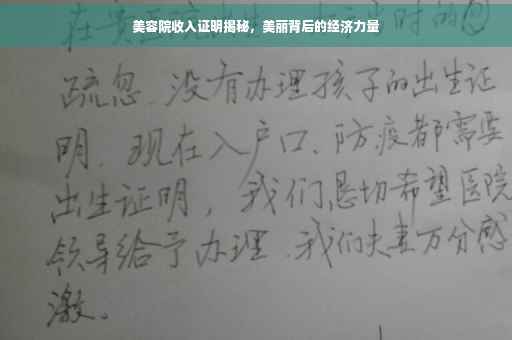 美容院收入证明揭秘，美丽背后的经济力量
疏忽、没有办理孩子的出生证
明、现在入户口、防疫都需要
出生证明，我们恳切希望医院
领导给予办理、我们夫妻万分感
激。